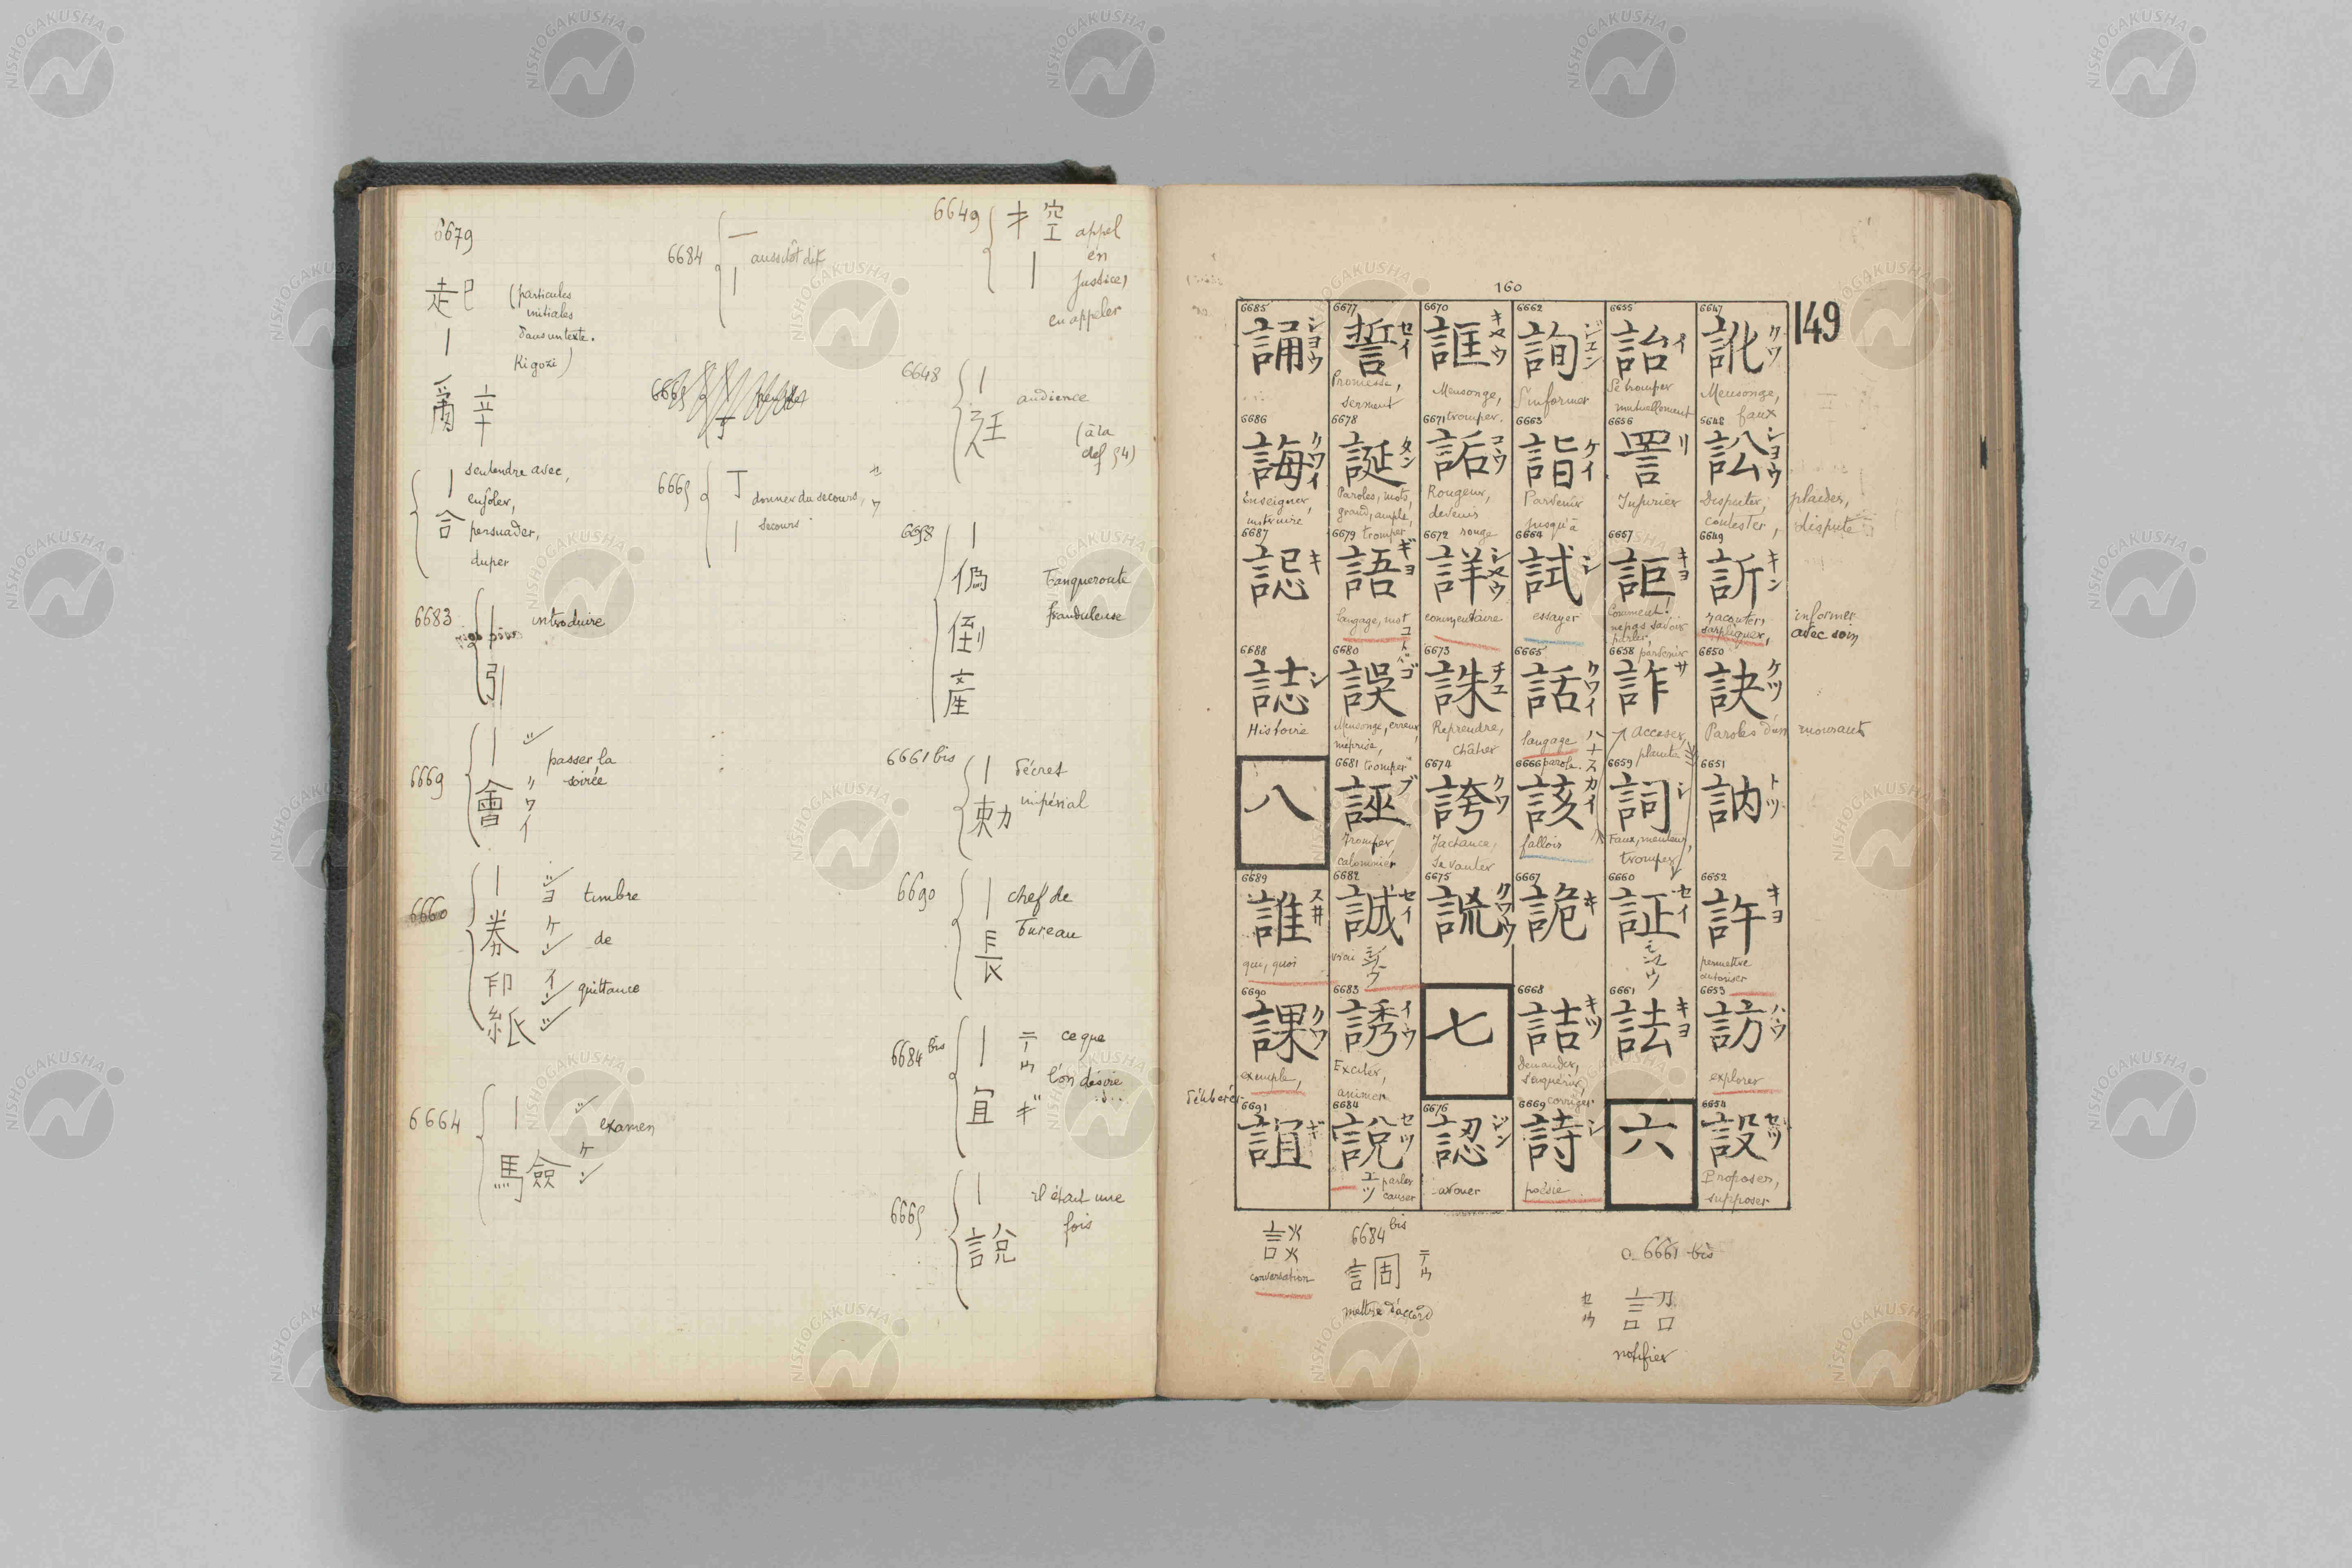 6679
起
(particules
initiales
dans un texte.
Kigozi)
辛
s'entendre avec,
enjôler,
合
persuader,
duper
6683
introduire
引
6669
passer la
soirée
會
ワイ
6660
timbre
ヨ
券
ケン
de
印
イン
quittance
紙
6664
examen
馬僉
ケン
6684
aussitôt dit
6665
丁
6665
丁
donner du secours,
secours
6649
扌空
appel
en
justice,
en appeler
6648
audience
廷
(à la
def 54)
6658
偽
Banqueroute
倒
frauduleuse
産
6661 bis
décret
impérial
勅
6690
chef de
bureau
長
6684 bis
テウ
ce que
l'on désire
宜
ギ
6665
il était une
fois
説
160
149
6647
訛
クワ
Mensonge,
faux
6648
訟
ショウ
Disputer,
contester,
plaider,
dispute
6649
訢
キン
raconter,
s'expliquer,
informer
avec soin
6650
訣
ケツ
Paroles d'un mourant
6651
訥
トツ
6652
許
キヨ
permettre
autoriser
6653
訪
ハウ
explorer
6654
設
セツ
Proposer,
supposer
6655
詒
イ
Se tromper
mutuellement
6656
詈
リ
Injurier
6657
詎
キヨ
Comment!
ne pas savoir
parler,
parvenir
6658
詐
サ
accuser,
plainte
6659
詞
シ
Faux, menteur,
tromper
6660
証
セイ
シヤウ
6661
詓
キヨ
六
6662
詢
ジユン
S'informer
6663
詣
ケイ
Parvenir
jusqu'à
6664
試
シ
essayer
6665
話
クワイ
langage
parole.
ハナス
6666
該
カイ
falloir
6667
詭
キ
6668
詰
キツ
Demander,
s'enquérir,
corriger
6669
詩
シ
poésie
6670
誆
キヤウ
Mensonge,
tromper.
6671
詬
コウ
Rougeur,
devenir
rouge
6672
詳
シヤウ
commentaire
6673
誅
チユ
Reprendre,
châtier
6674
誇
クワ
Jactance,
se vanter
6675
詤
クワウ
七
6676
認
ジン
avouer
6677
誓
セイ
Promesse,
serment
6678
誕
タン
Paroles, mots,
grand, ample,
tromper
6679
語
ギヨ
langage, mot
コトバ
6680
誤
ゴ
Mensonge, erreur,
méprise,
tromper
6681
誣
ブ
Tromper,
calomnier
6682
誠
セイ
vrai
6683
誘
イウ
Exciter,
animer
6684
説
セツ
エツ
parler
causer
6685
誦
シヨウ
6686
誨
クワイ
Enseigner,
instruire
6687
誋
キ
6688
誌
シ
Histoire
八
6689
誰
スヰ
qui, quoi
6690
課
クワ
exemple,
délibérer
6691
誼
ギ
談
conversation
6684 bis
調
テウ
mettre d'accord
6661 bis
詔
セウ
notifier